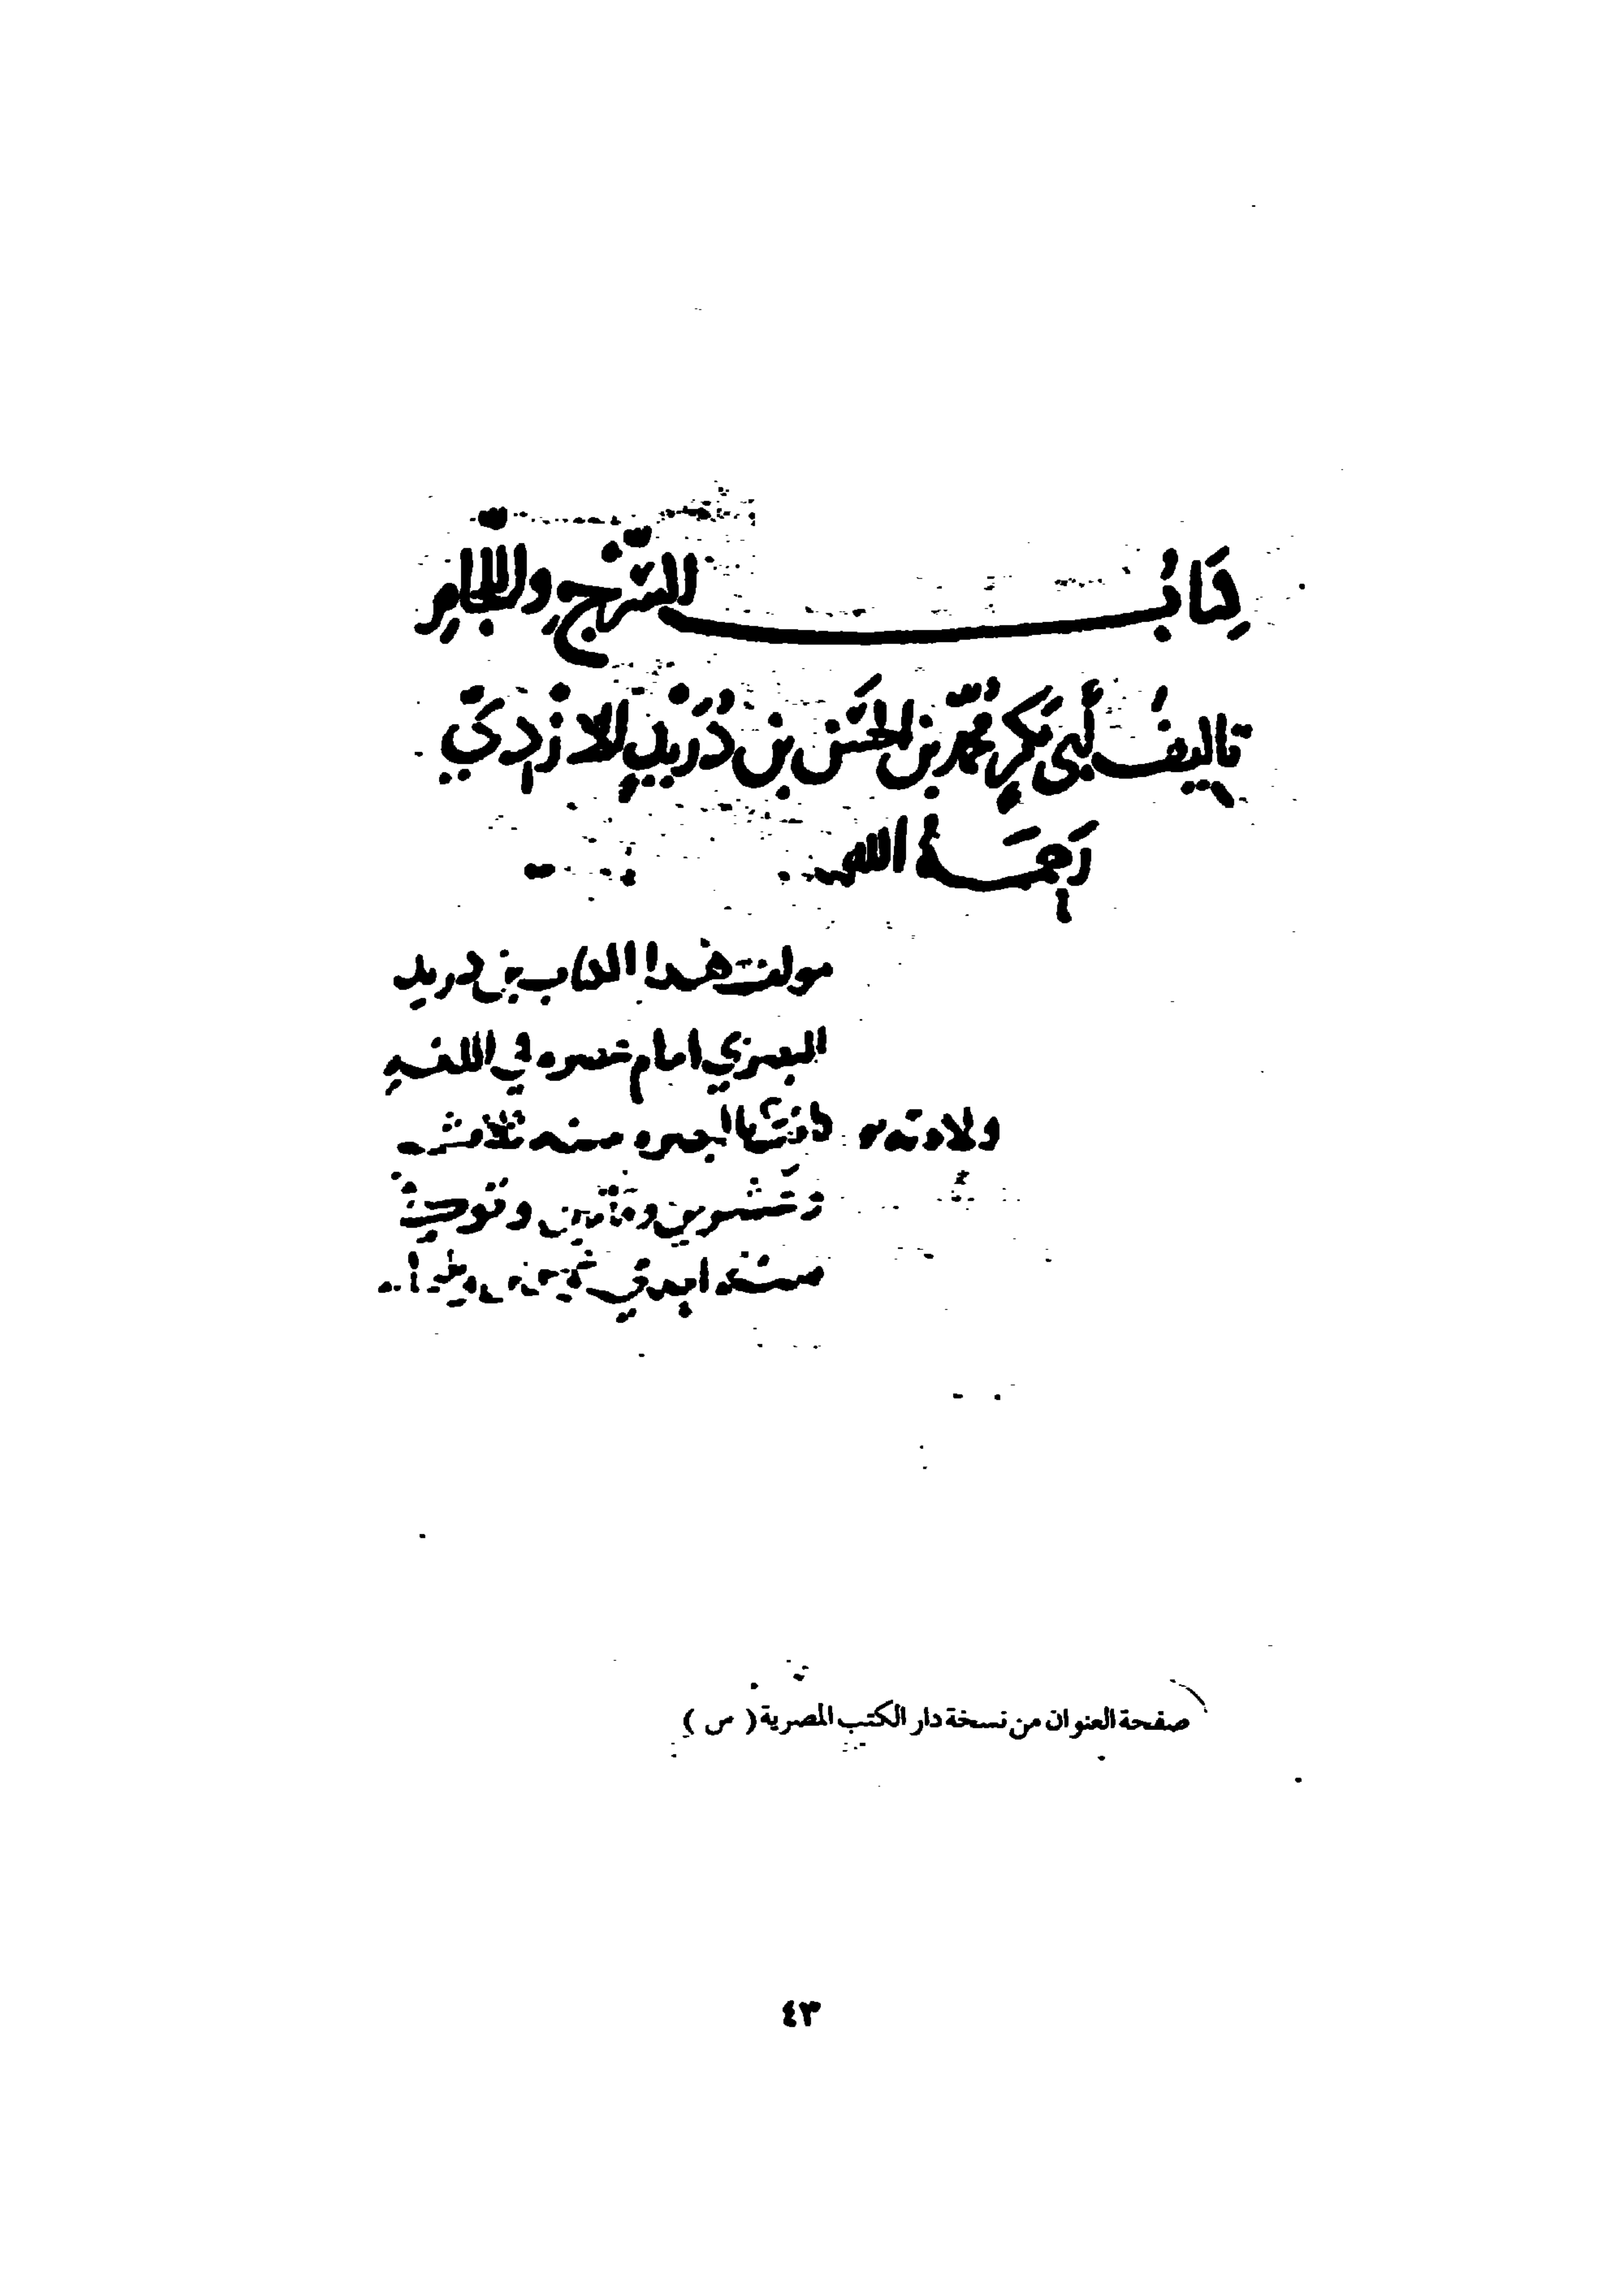 كِتَابُ السَّرْجِ واللِّجَامِ
تاليفُ أَبي بَكرٍ مُحمَّد بنِ الحَسَن بن دُرَيْدٍ الازْدِيّ
رَحِمَهُ الله
مولف هذا الكتاب بن دريد
البصري امام عصره في اللغه
ولادته بالبصره سنه ثلاث
وعشرين ومأتين وتوفي
سنه احدي
صفحة العنوان من نسخة دار الكتب المصرية ( س )
٤٣